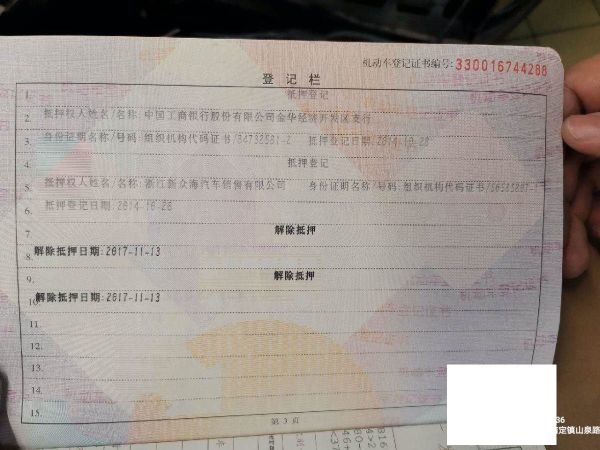 机动车登记证书编号:330016744288
登记栏
1. 抵押登记
2. 抵押权人姓名/名称:中国工商银行股份有限公司金华经济开发区支行
3. 身份证明名称/号码:组织机构代码证书/ 抵押登记日期:2014-10-28
4. 抵押登记
5. 抵押权人姓名/名称:浙江新众海汽车销售有限公司 身份证明名称/号码:组织机构代码证书/
6. 抵押登记日期:2014-10-28
7. 解除抵押
8. 解除抵押日期:2017-11-13
9. 解除抵押
10. 解除抵押日期:2017-11-13
11.
12.
13.
14.
15.
第 3 页
36
定镇山泉路